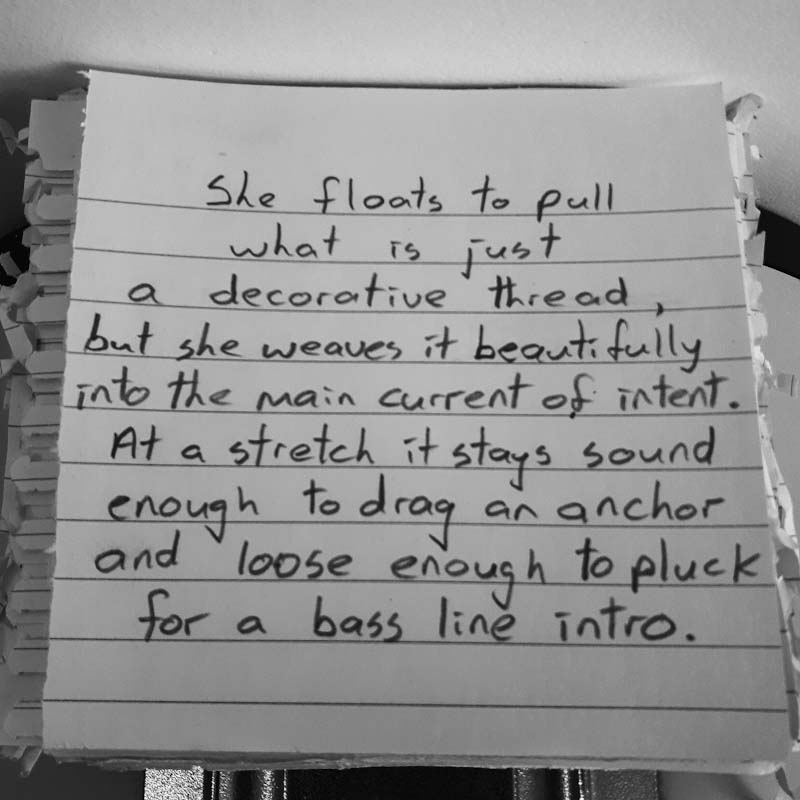 She floats to pull
what is just
a decorative thread,
but she weaves it beautifully
into the main current of intent.
At a stretch it stays sound
enough to drag an anchor
and loose enough to pluck
for a bass line intro.